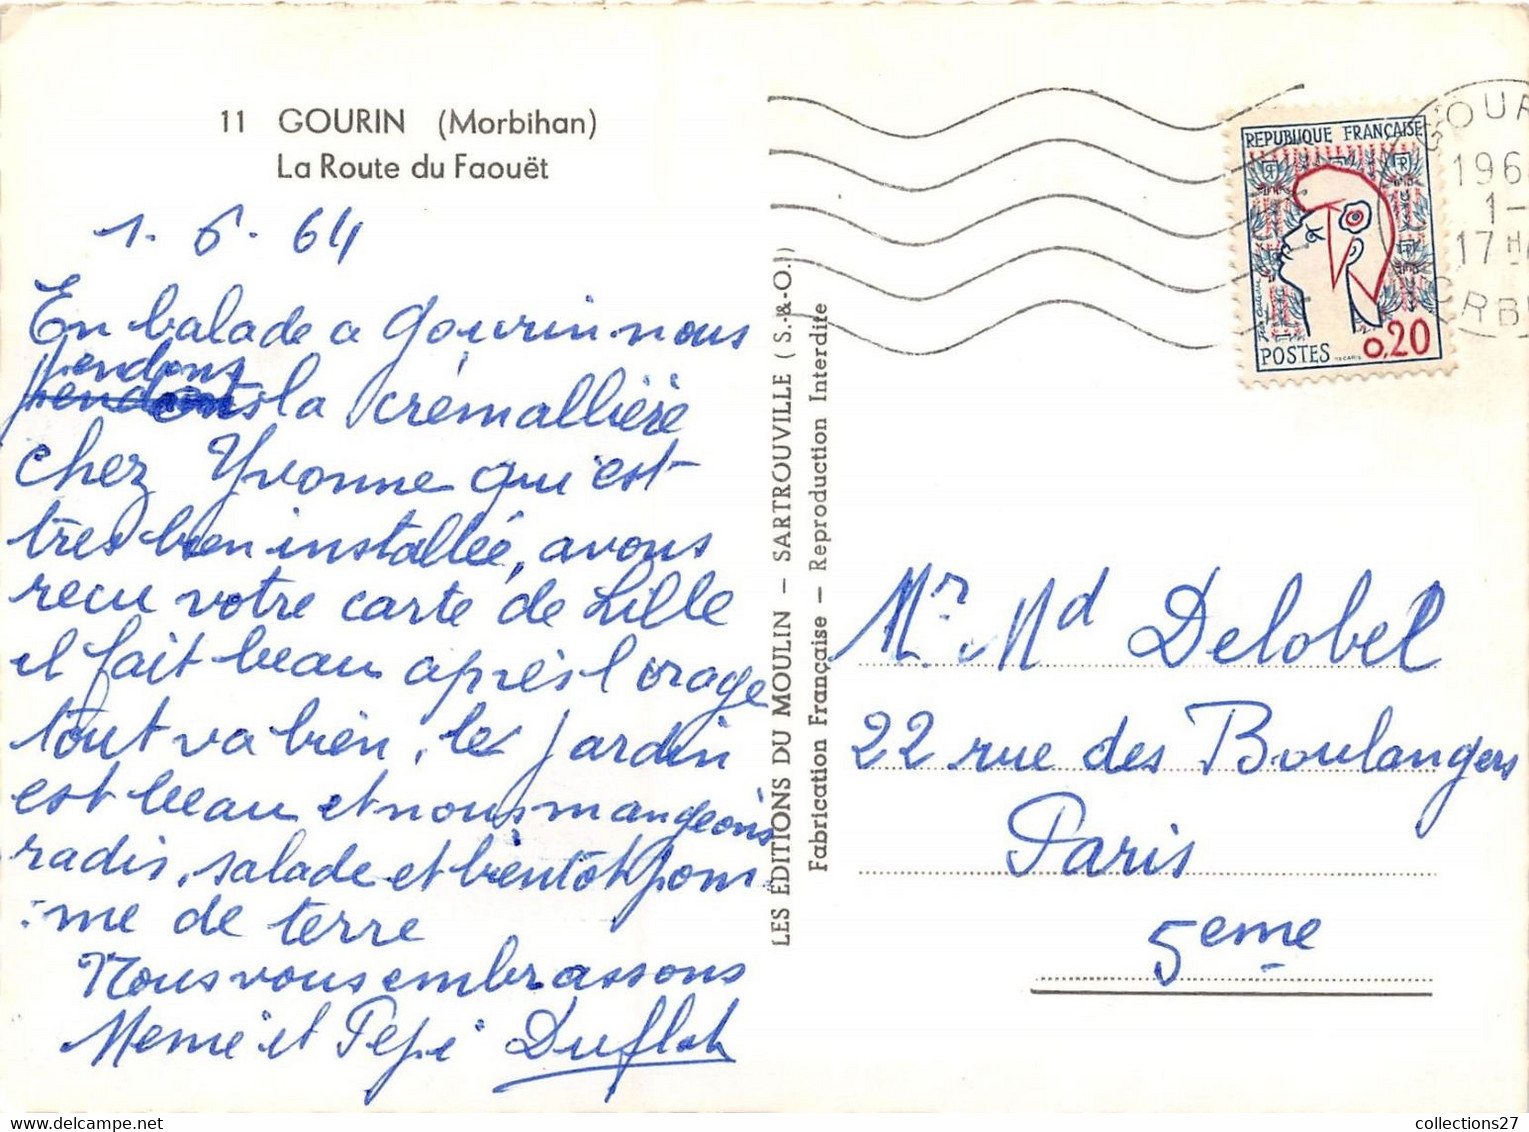 11 GOURIN (Morbihan)
La Route du Faouët
1. 6. 64
En balade a Gourin nous
pendons
la crémallière
chez Yvonne qui est
très bien installée, avons
recu votre carte de Lille
il fait beau après l orage
tout va bien, le jardin
est beau et nous mangeons
radis, salade et bientot pom
me de terre
Nous vous embrassons
Memé et Pepé Duflot
LES ÉDITIONS DU MOULIN — SARTROUVILLE (S.-&-O.)
Fabrication Française — Reproduction Interdite
REPUBLIQUE FRANÇAISE
POSTES 0,20
GOUR
196
1-
17 H
RB
Mr Md Delobel
22 rue des Boulangers
Paris
5eme
collections27